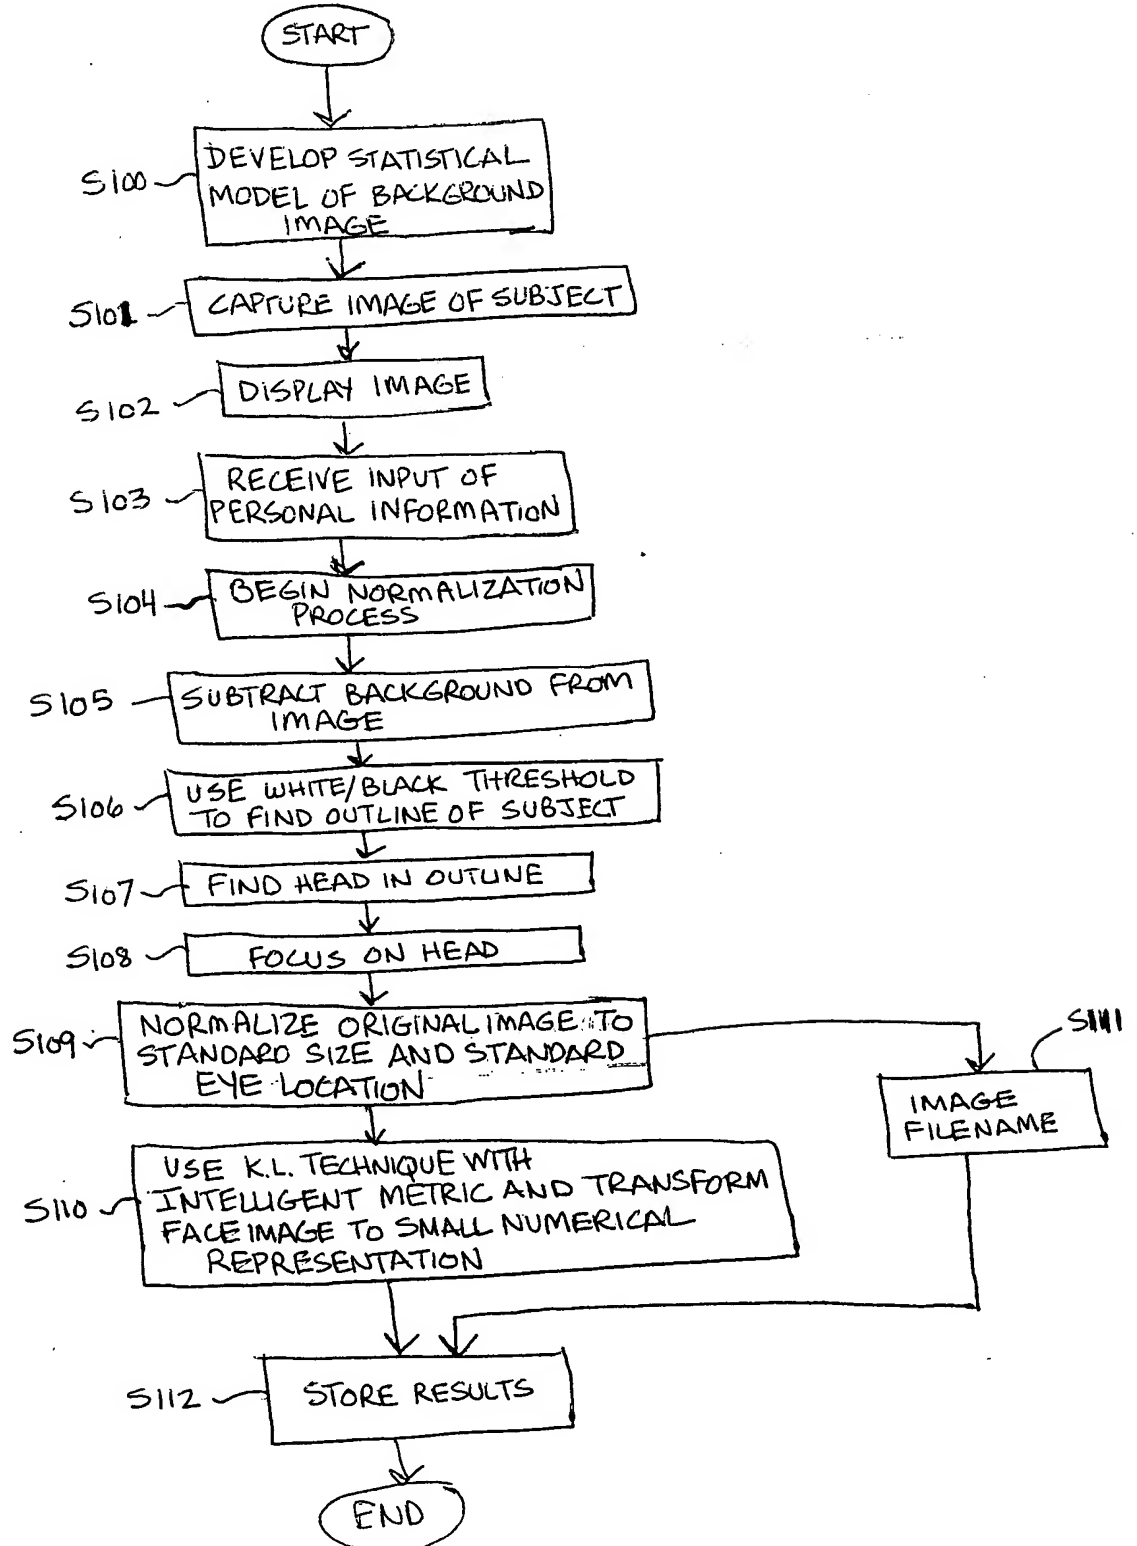 START
S100
DEVELOP STATISTICAL
MODEL OF BACKGROUND
IMAGE
S101
CAPTURE IMAGE OF SUBJECT
S102
DISPLAY IMAGE
S103
RECEIVE INPUT OF
PERSONAL INFORMATION
S104
BEGIN NORMALIZATION
PROCESS
S105
SUBTRACT BACKGROUND FROM
IMAGE
S106
USE WHITE/BLACK THRESHOLD
TO FIND OUTLINE OF SUBJECT
S107
FIND HEAD IN OUTLINE
S108
FOCUS ON HEAD
S109
NORMALIZE ORIGINAL IMAGE TO
STANDARD SIZE AND STANDARD
EYE LOCATION
S111
IMAGE
FILENAME
S110
USE K.L. TECHNIQUE WITH
INTELLIGENT METRIC AND TRANSFORM
FACE IMAGE TO SMALL NUMERICAL
REPRESENTATION
S112
STORE RESULTS
END